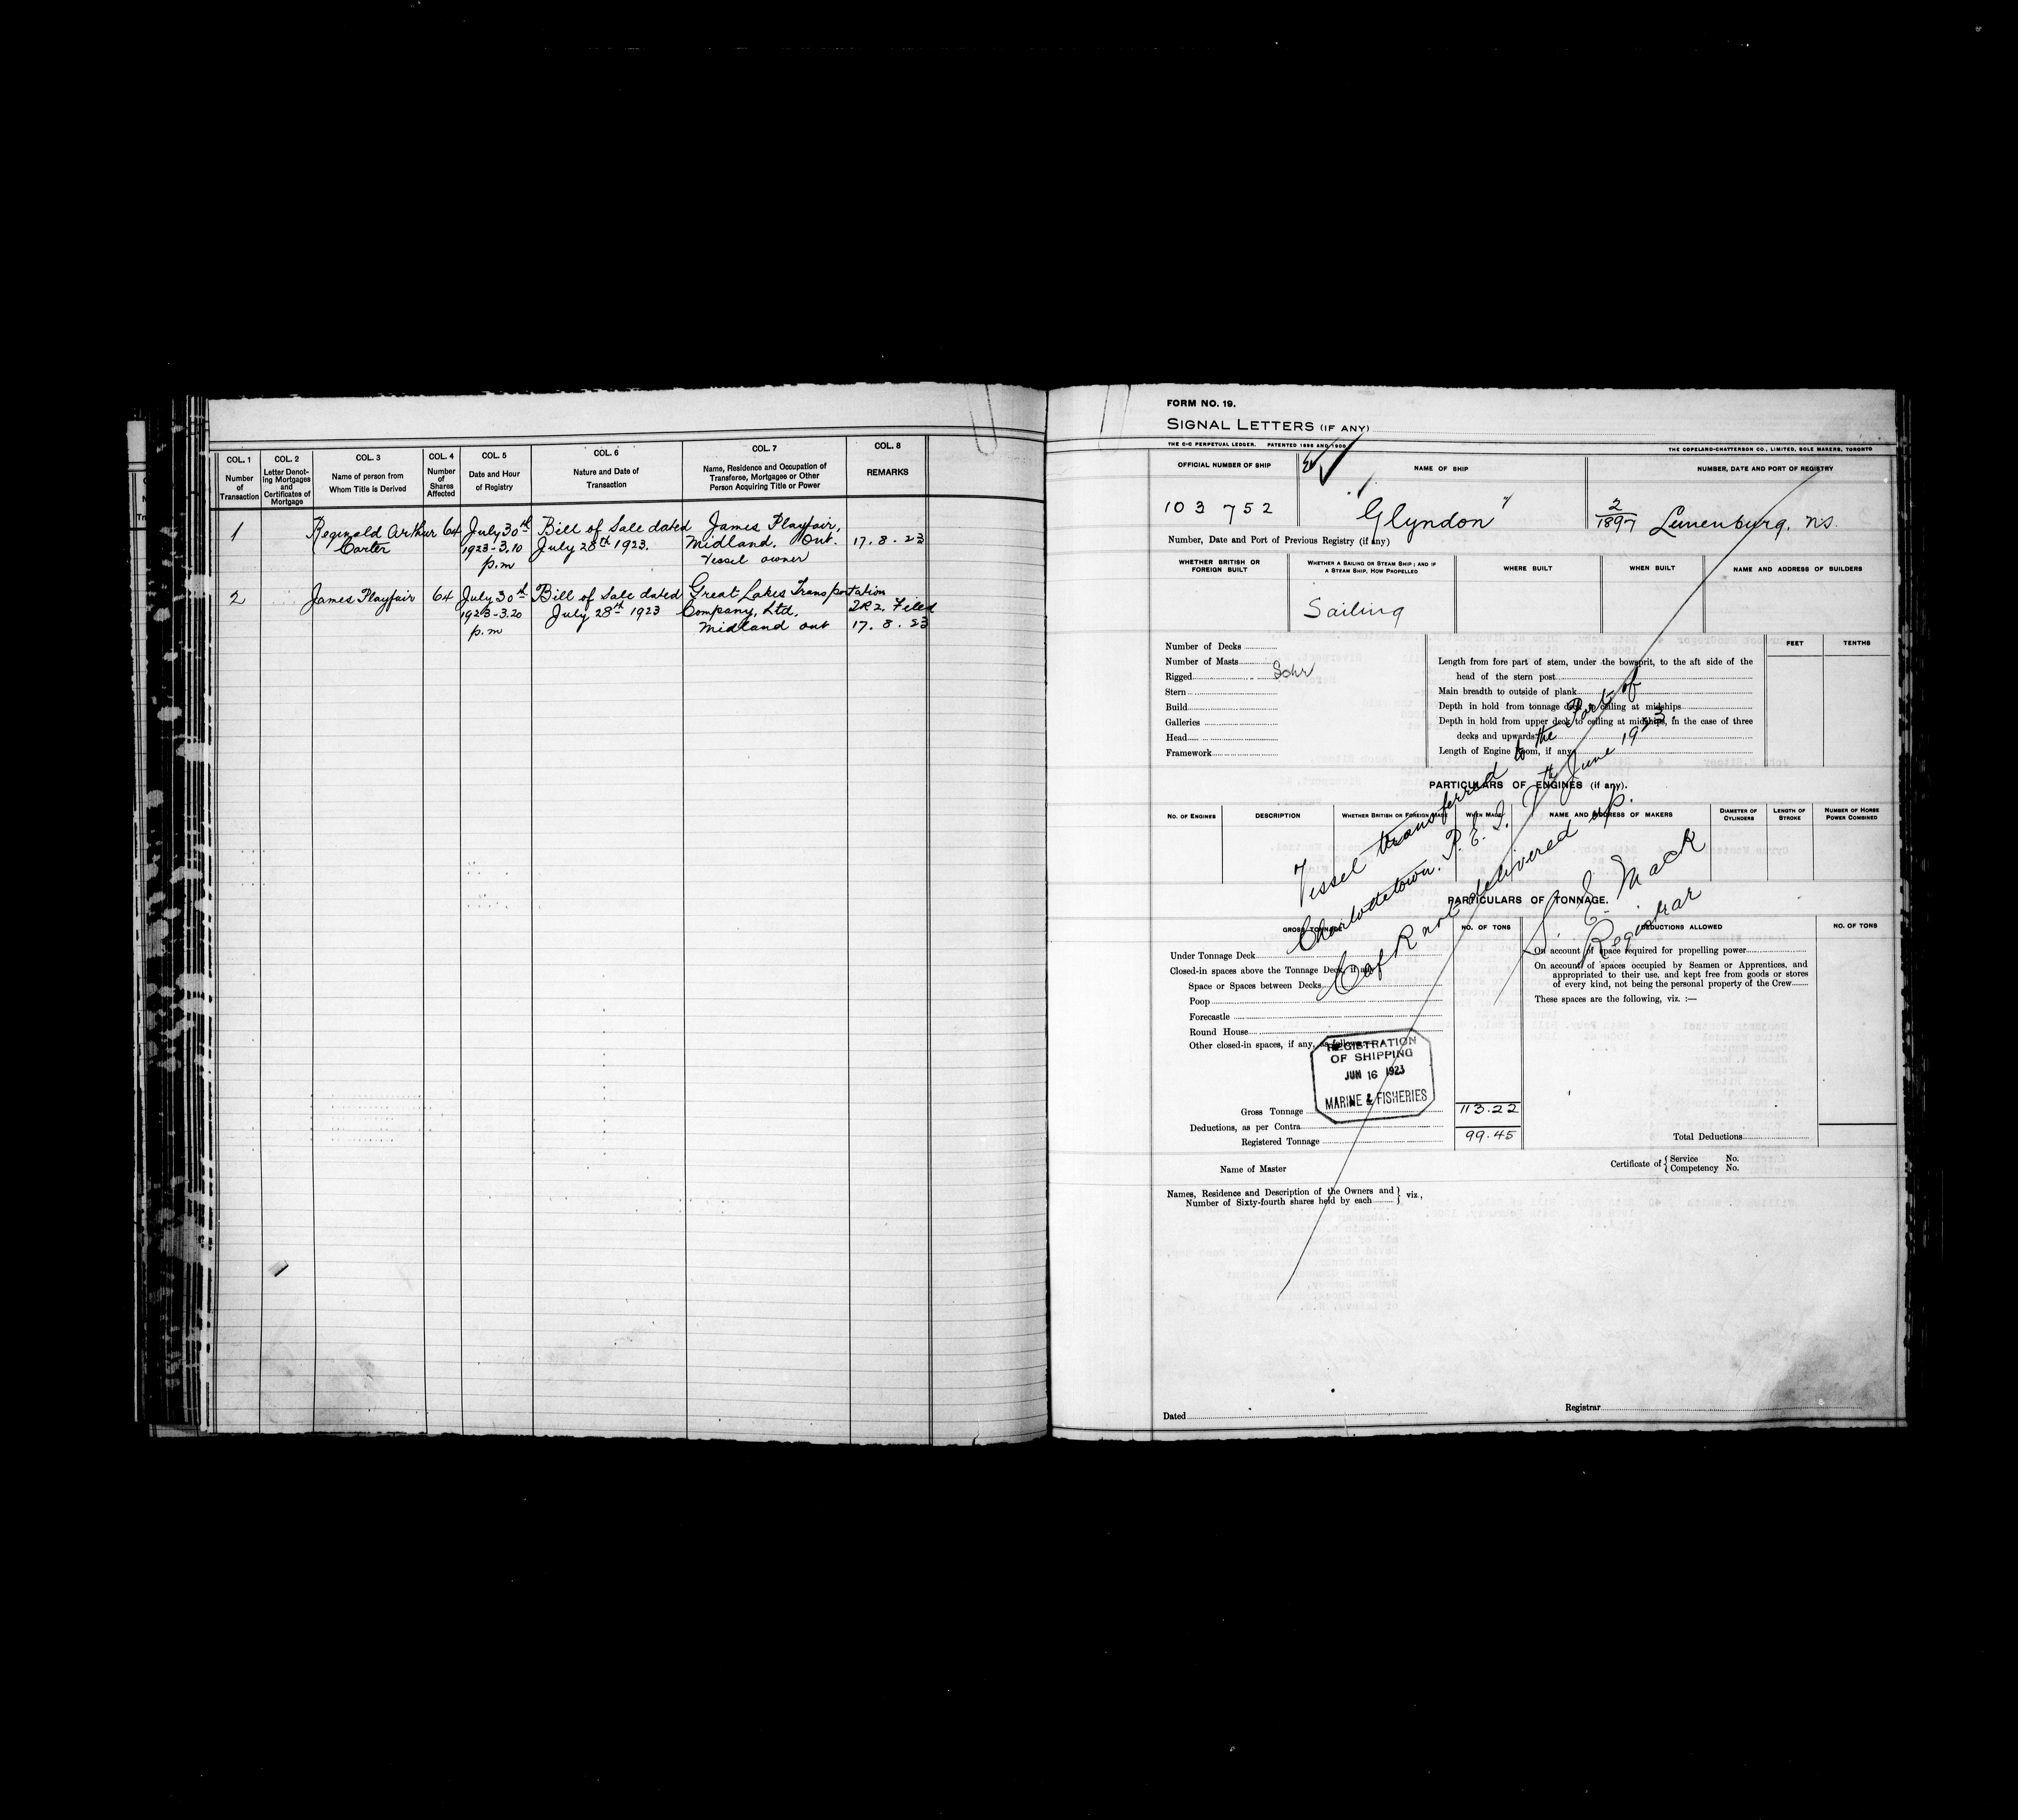 COL. 1 COL. 2 COL. 3 COL. 4 COL. 5 COL. 6 COL. 7 COL. 8
Number of Transaction
Letter Denoting Mortgages and Certificates of Mortgage
Name of person from Whom Title is Derived
Number of Shares Affected
Date and Hour of Registry
Nature and Date of Transaction
Name, Residence and Occupation of Transferee, Mortgagee or Other Person Acquiring Title or Power
REMARKS
1 Reginald Arthur 64 July 30th Bill of Sale dated James Playfair,
Carter 1923-3.10 July 28th 1923. Midland, Ont. 17.8.23
p.m Vessel owner
2 James Playfair 64 July 30th Bill of Sale dated Great Lakes Transportation
1923-3.20 July 28th 1923 Company, Ltd. 2R2. Filed
p.m Midland Ont 17.8.23
FORM NO. 19.
SIGNAL LETTERS (IF ANY)
THE C-C PERPETUAL LEDGER. PATENTED 1896 AND 1900 THE COPELAND-CHATTERSON CO., LIMITED, SOLE MAKERS, TORONTO
OFFICIAL NUMBER OF SHIP NAME OF SHIP NUMBER, DATE AND PORT OF REGISTRY
103752 "Glyndon" 2/1897 Lunenburg, N.S.
Number, Date and Port of Previous Registry (if any)
WHETHER BRITISH OR FOREIGN BUILT
WHETHER A SAILING OR STEAM SHIP; AND IF A STEAM SHIP, HOW PROPELLED
WHERE BUILT WHEN BUILT NAME AND ADDRESS OF BUILDERS
Sailing
FEET TENTHS
Number of Decks
Number of Masts
Rigged Schr
Stern
Build
Galleries
Head
Framework
Length from fore part of stem, under the bowsprit, to the aft side of the
head of the stern post
Main breadth to outside of plank
Depth in hold from tonnage deck to ceiling at midships
Depth in hold from upper deck to ceiling at midships, in the case of three
decks and upwards
Length of Engine Room, if any
PARTICULARS OF ENGINES (if any).
No. OF ENGINES DESCRIPTION WHETHER BRITISH OR FOREIGN MADE WHEN MADE NAME AND ADDRESS OF MAKERS DIAMETER OF CYLINDERS LENGTH OF STROKE NUMBER OF HORSE POWER COMBINED
Vessel transferred to the Port of
Charlottetown. P.E.I. 7th June 1923
C of R not delivered up.
S. E. Mack
Registrar
PARTICULARS OF TONNAGE.
GROSS TONNAGE NO. OF TONS DEDUCTIONS ALLOWED NO. OF TONS
Under Tonnage Deck
Closed-in spaces above the Tonnage Deck, if any
Space or Spaces between Decks
Poop
Forecastle
Round House
Other closed-in spaces, if any, as follows
On account of space required for propelling power
On account of spaces occupied by Seamen or Apprentices, and
appropriated to their use, and kept free from goods or stores
of every kind, not being the personal property of the Crew
These spaces are the following, viz. :—
REGISTRATION
OF SHIPPING
JUN 16 1923
MARINE & FISHERIES
Gross Tonnage 113.22
Deductions, as per Contra
Registered Tonnage 99.45
Total Deductions
Name of Master
Certificate of { Service No.
Competency No.
Names, Residence and Description of the Owners and
Number of Sixty-fourth shares held by each } viz.,
Dated
Registrar